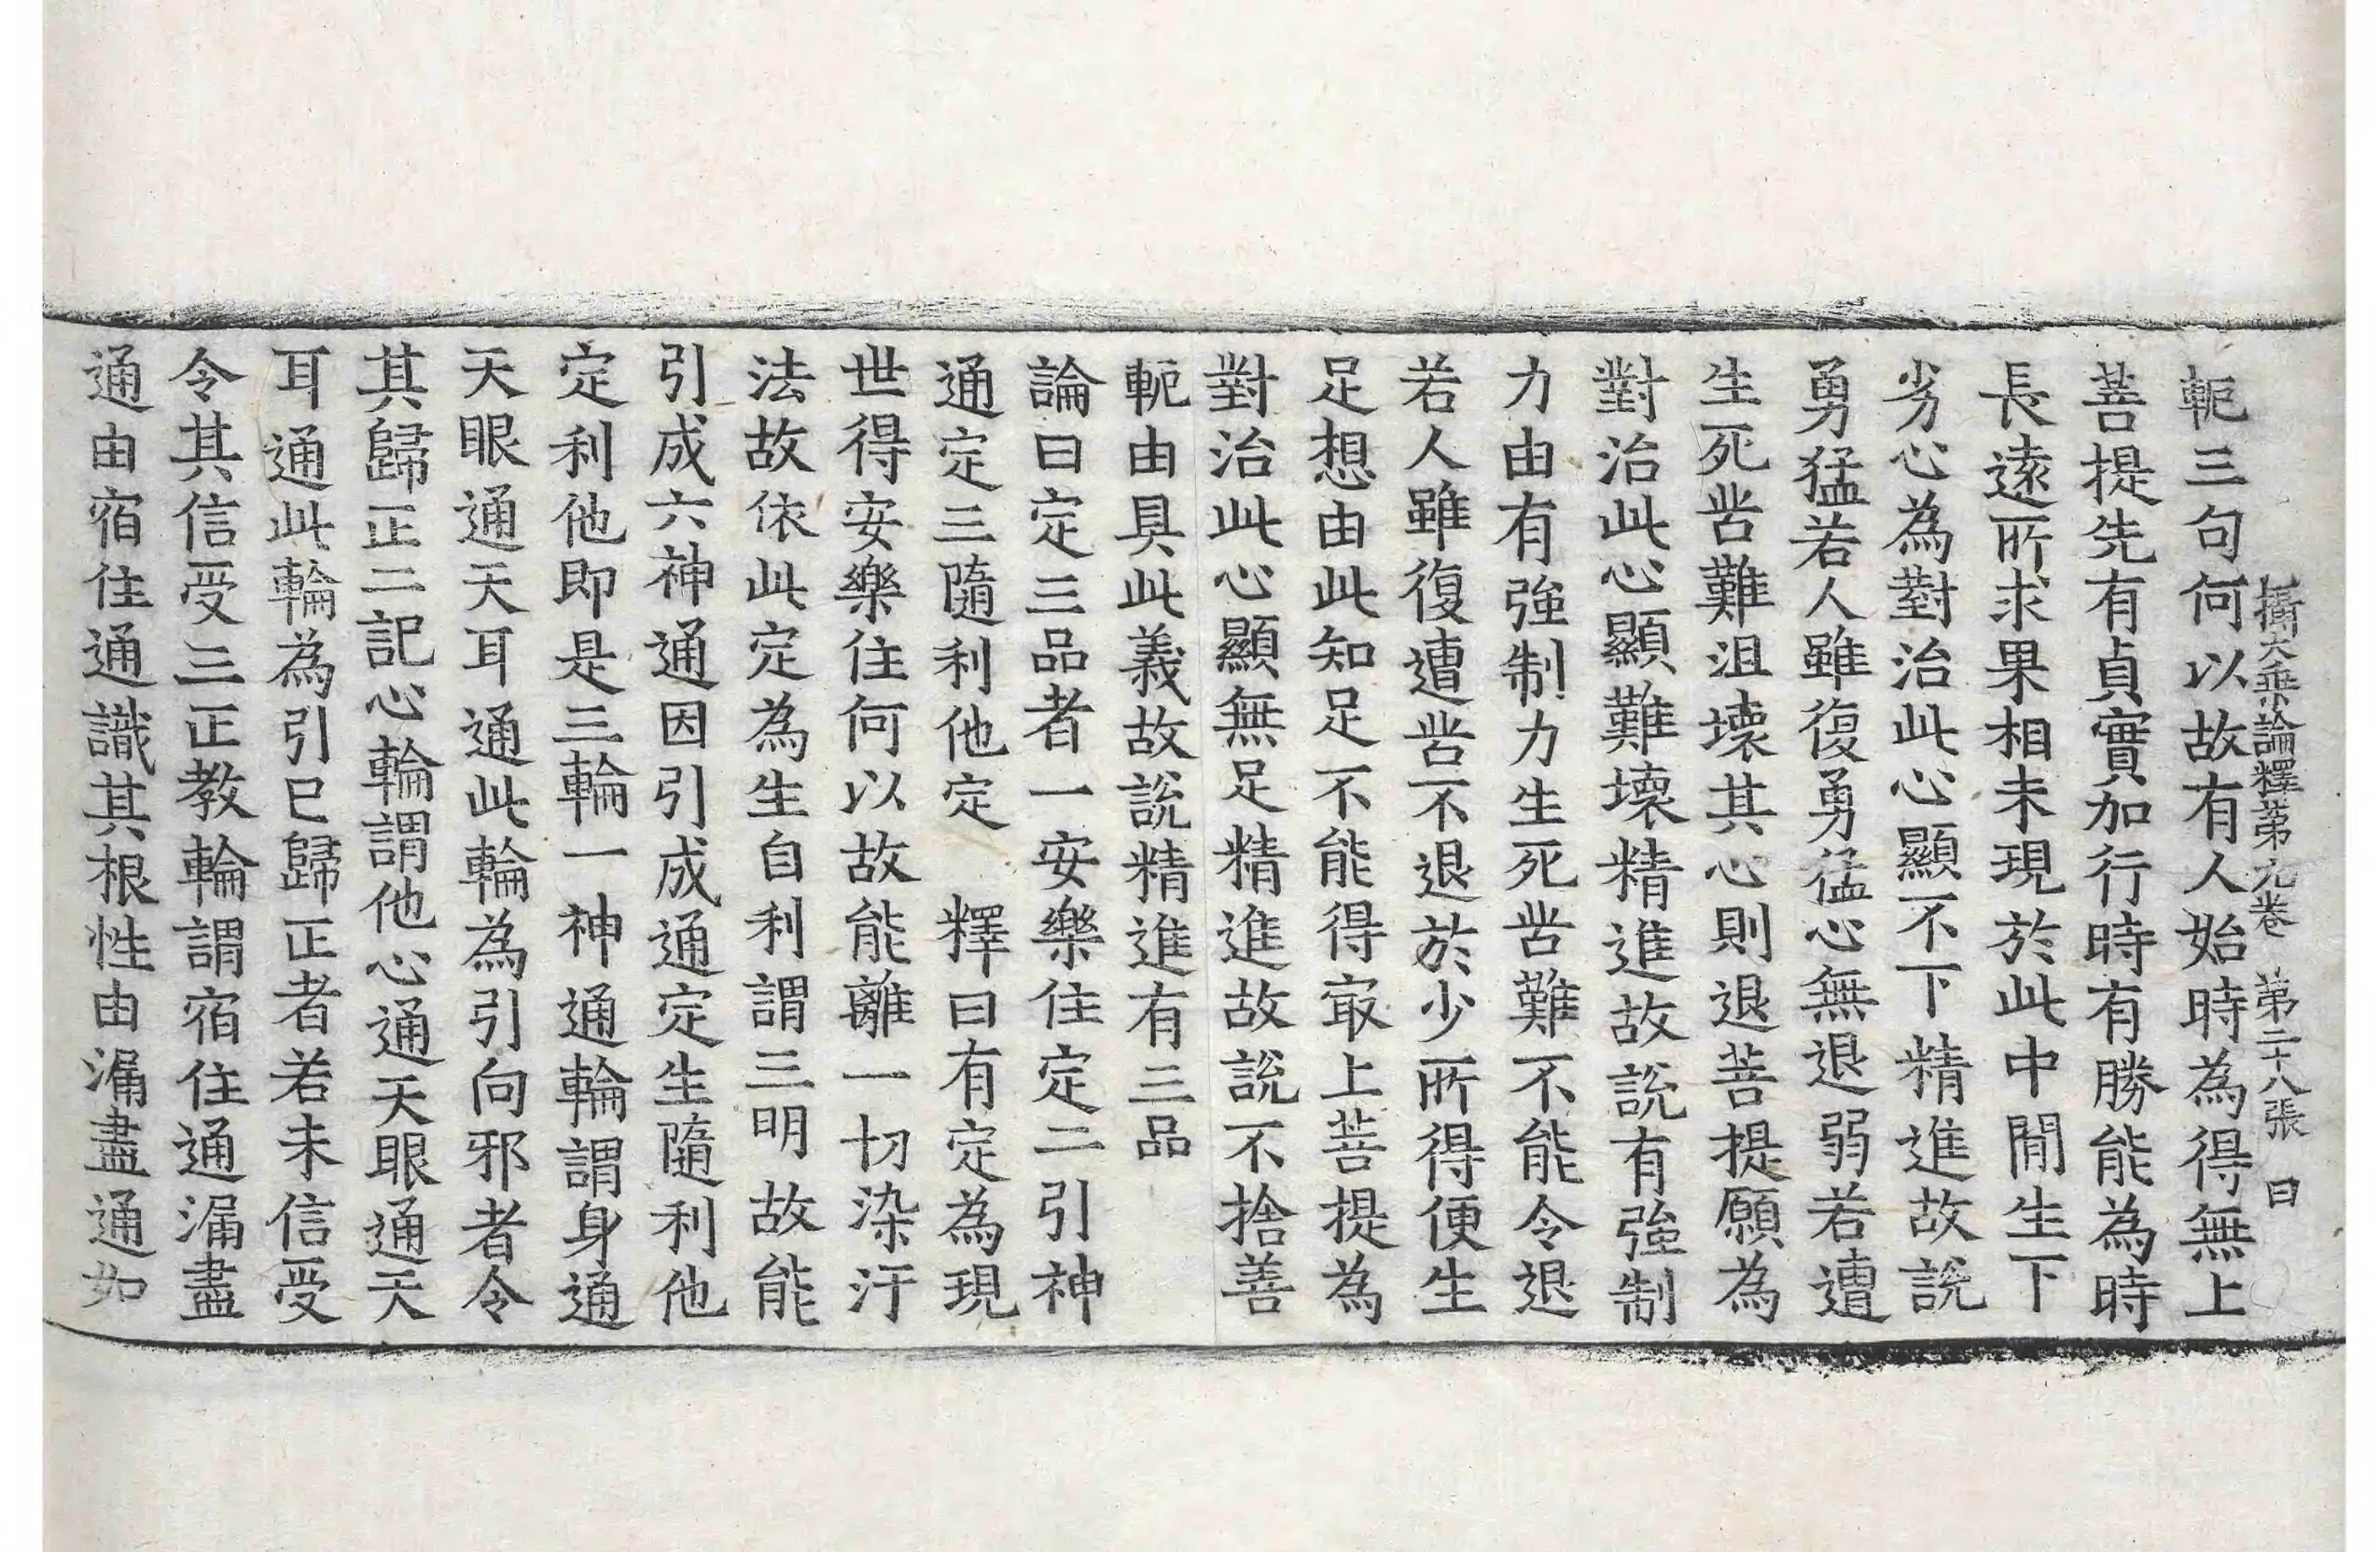 攝大乘論釋第九卷 第二十八張 曰
軛三句何以故有人始時為得無上
菩提先有貞實加行時有勝能為時
長遠所求果相未現於此中閒生下
劣心為對治此心顯不下精進故說
勇猛若人雖復勇猛心無退弱若遭
生死苦難沮壞其心則退菩提願為
對治此心顯難壞精進故說有強制
力由有強制力生死苦難不能令退
若人雖復遭苦不退於少所得便生
足想由此知足不能得㝡上菩提為
對治此心顯無足精進故說不捨善
軛由具此義故說精進有三品
論曰定三品者一安樂住定二引神
通定三隨利他定 釋曰有定為現
世得安樂住何以故能離一切染汙
法故依此定為生自利謂三明故能
引成六神通因引成通定生隨利他
定利他即是三輪一神通輪謂身通
天眼通天耳通此輪為引向邪者令
其歸正二記心輪謂他心通天眼通天
耳通此輪為引已歸正者若未信受
令其信受三正教輪謂宿住通漏盡
通由宿住通識其根性由漏盡通如